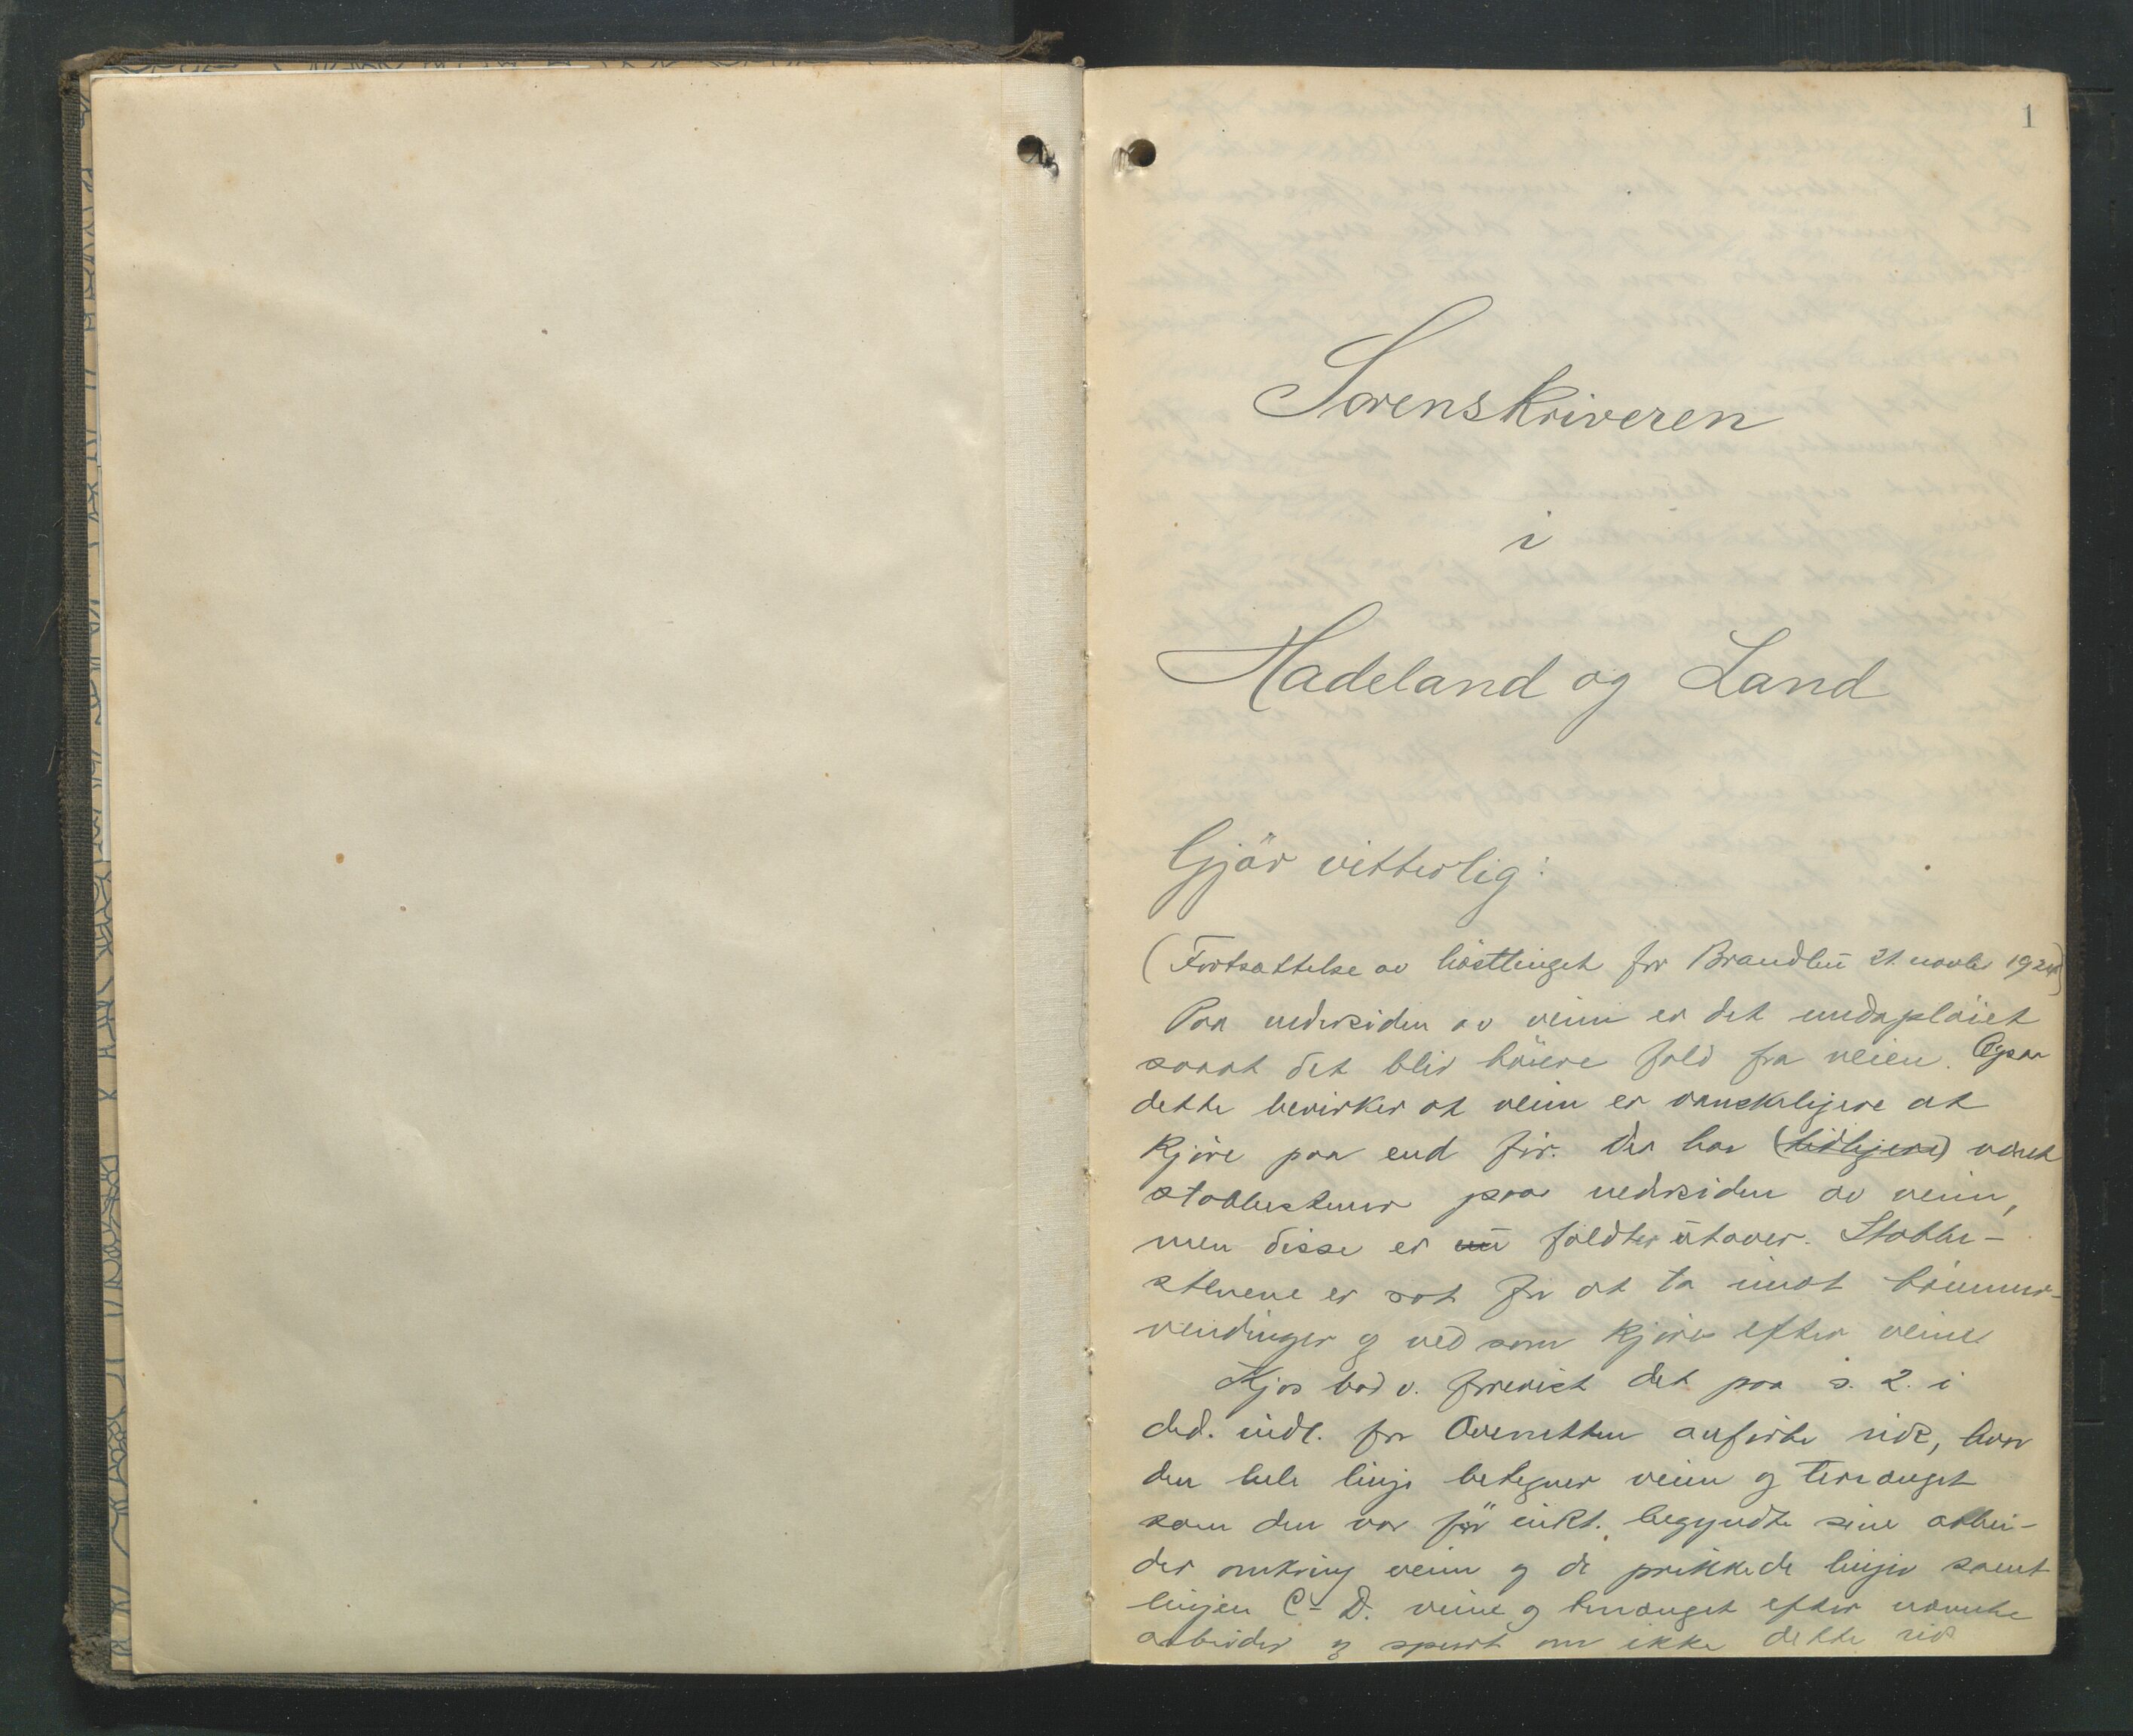 1
Sorenskriveren
i
Hadeland og Land
Gjör vitterlig:
(Fortsættelse av hösttinget for Brandbu 21. novbr 1924)
Paa nedersiden av veien er det undapløiet
saaat det blir høiere fald fra veien. Ogsaa
dette bevirker at veien er vanskeligere at
kjöre paa end för. Der har (tidligere) været
stabbestener paa nedersiden av veien,
men disse er nu faldt utover. Stabbe-
stenene er sat for at ta imot tömmer-
vendinger og ved som kjöres efter veien.
Kjos bad v. forevist det paa s. 2. i
ded. indl. for Overretten anförte rids, hvor
den hele linje betegner veien og terrænget
som den var för cikt. begyndte sine arbei-
der omkring veien og de prikkede linjer samt
linjen C-D. veien og terrænget efter nævnte
arbeider og spurt om ikke dette rids